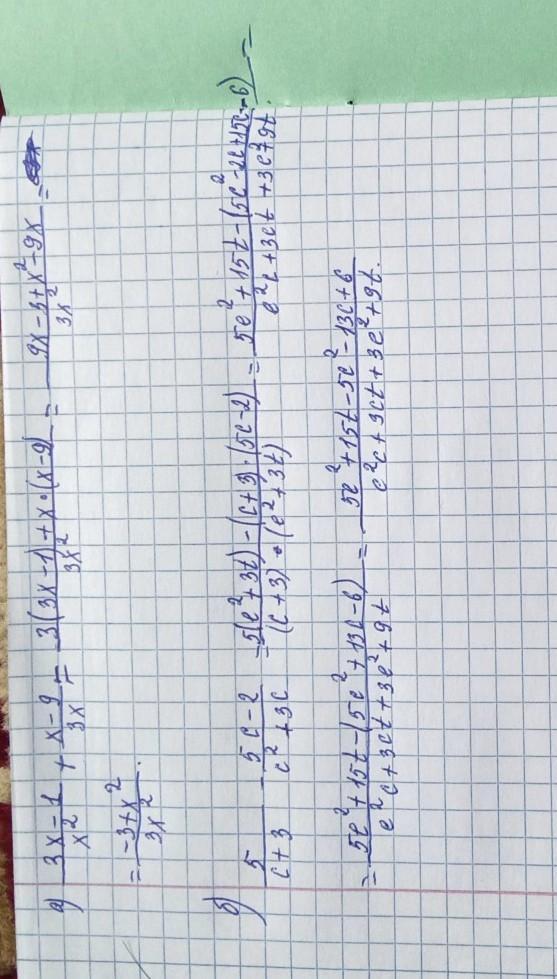 а) (3x-1)/x² + (x-9)/3x = (3(3x-1)+x·(x-9))/3x² = (9x-3+x²-9x)/3x² =
= (-3+x²)/3x².
б) 5/(c+3) - (5c-2)/(c²+3c) = (5(e²+3t)-(c+3)·(5c-2))/((c+3)·(e²+3t)) = (5e²+15t-(5c²-2c+15c-6))/(e²c+3ct+3c²+9t) =
= (5e²+15t-(5e²+13c-6))/(e²c+3ct+3e²+9t) = (5e²+15t-5c²-13c+6)/(e²c+3ct+3e²+9t).